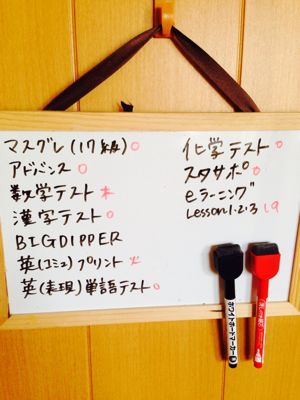 マスグレ(17級)○
アドバンス○
数学テスト木
漢字テスト○
BIGDIPPER
英(コミュ)プリント火
英(表現)単語テスト○
化学テスト○
スタサポ○
eラーニング
Lesson1・2・3 L9
ホワイトボードマーカー